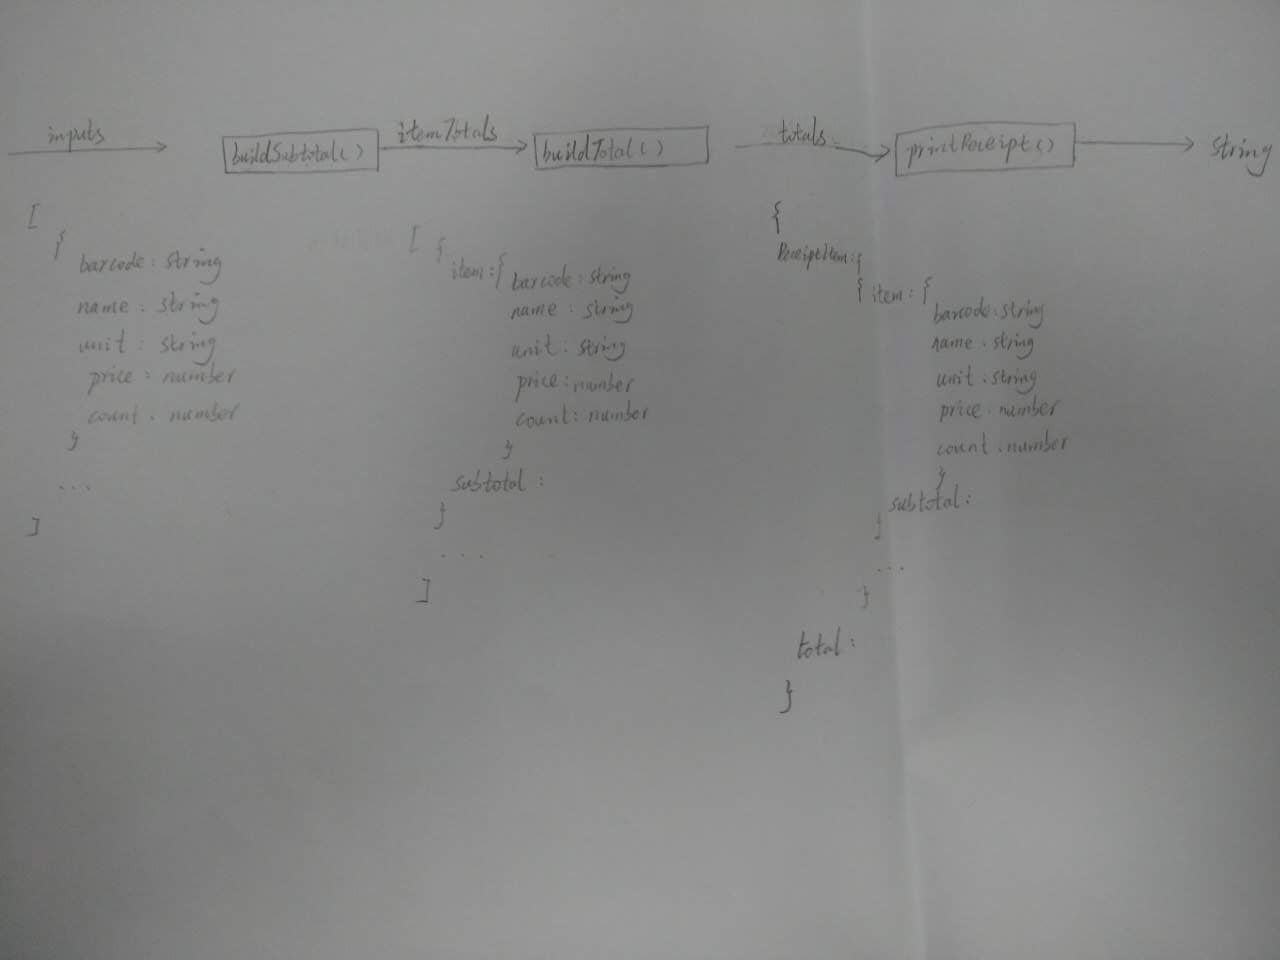 inputs
buildSubtotal()
itemTotals
buildTotal()
totals
printReceipt()
string
[
{
barcode: string
name: string
unit: string
price: number
count: number
}
...
]
[ {
item: { barcode: string
name: string
unit: string
price: number
count: number
}
subtotal:
}
...
]
{
ReceiptItem: {
{ item: {
barcode: string
name: string
unit: string
price: number
count: number
}
subtotal:
}
...
}
total:
}